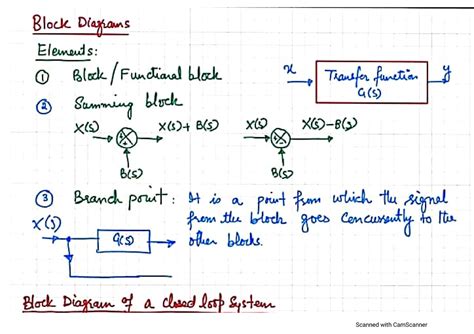 Block Diagrams
Elements:
① Block / Functional block
x
Transfer function
G(s)
y
② Summing block
X(s)
X(s) + B(s)
B(s)
X(s)
X(s) - B(s)
B(s)
③ Branch point: It is a point from which the signal
from the block goes concurrently to the
other blocks.
X(s)
G(s)
Block Diagram of a closed loop System
Scanned with CamScanner